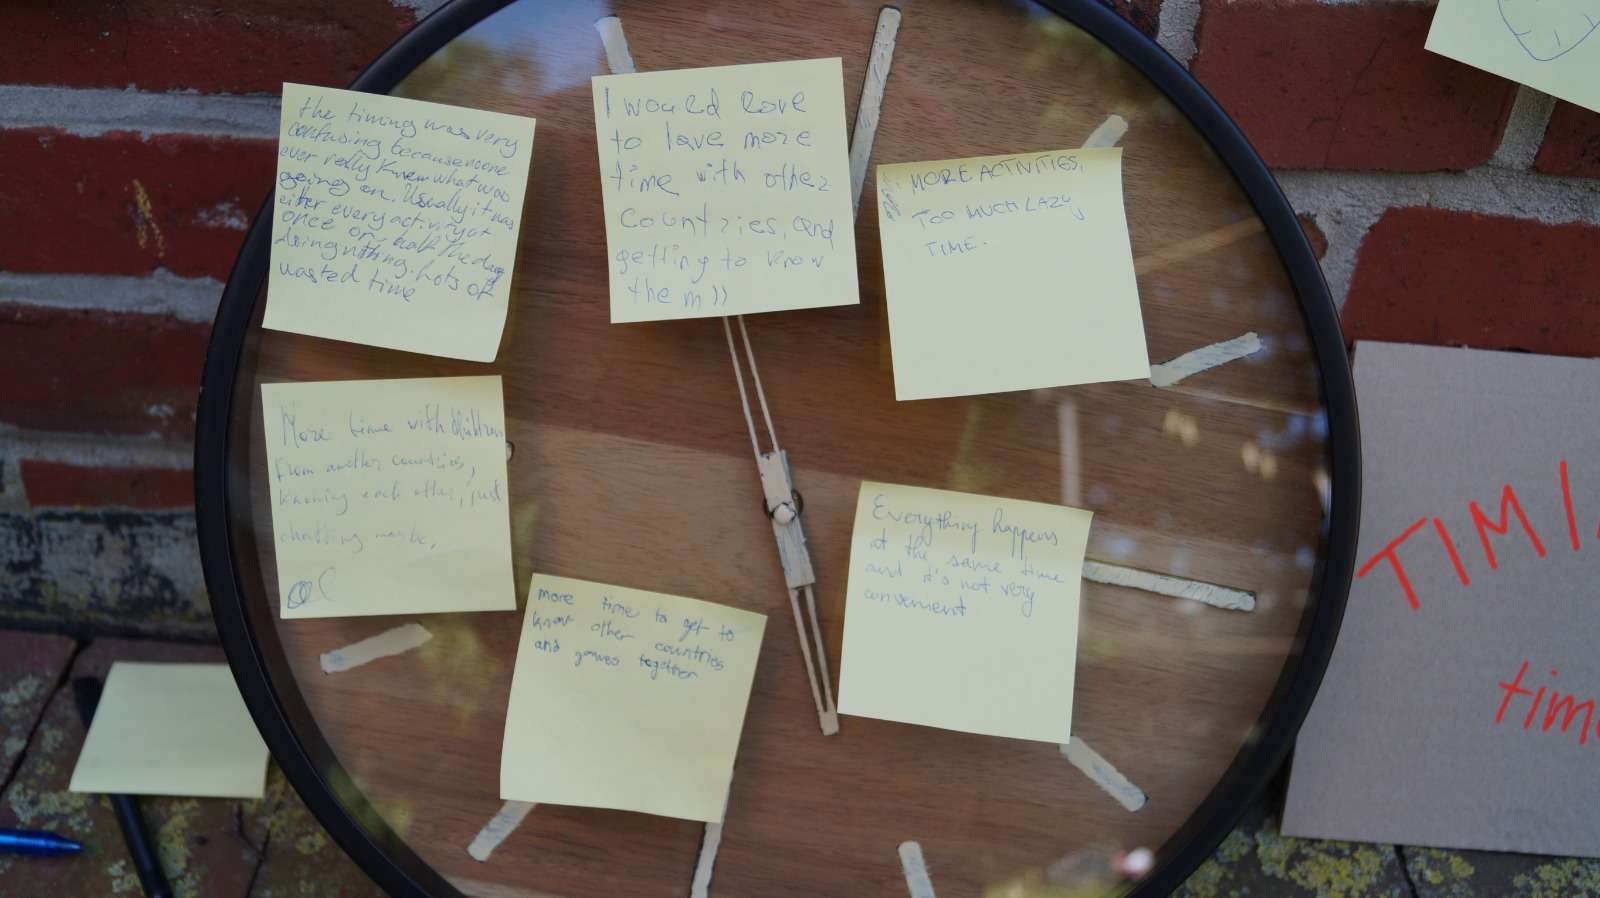 the timing was very
confusing because noone
ever really knew what was
going on. Usually it was
either every activity at
once or half the day
doing nothing. Lots of
wasted time
I would love
to have more
time with other
countries, and
getting to know
them ))
MORE ACTIVITIES,
TOO MUCH LAZY
TIME.
More time with children
from another countries,
knowing each other, just
chatting maybe,
Everything happens
at the same time
and it's not very
convenient
more time to get to
know other countries
and games together
TIMI
time